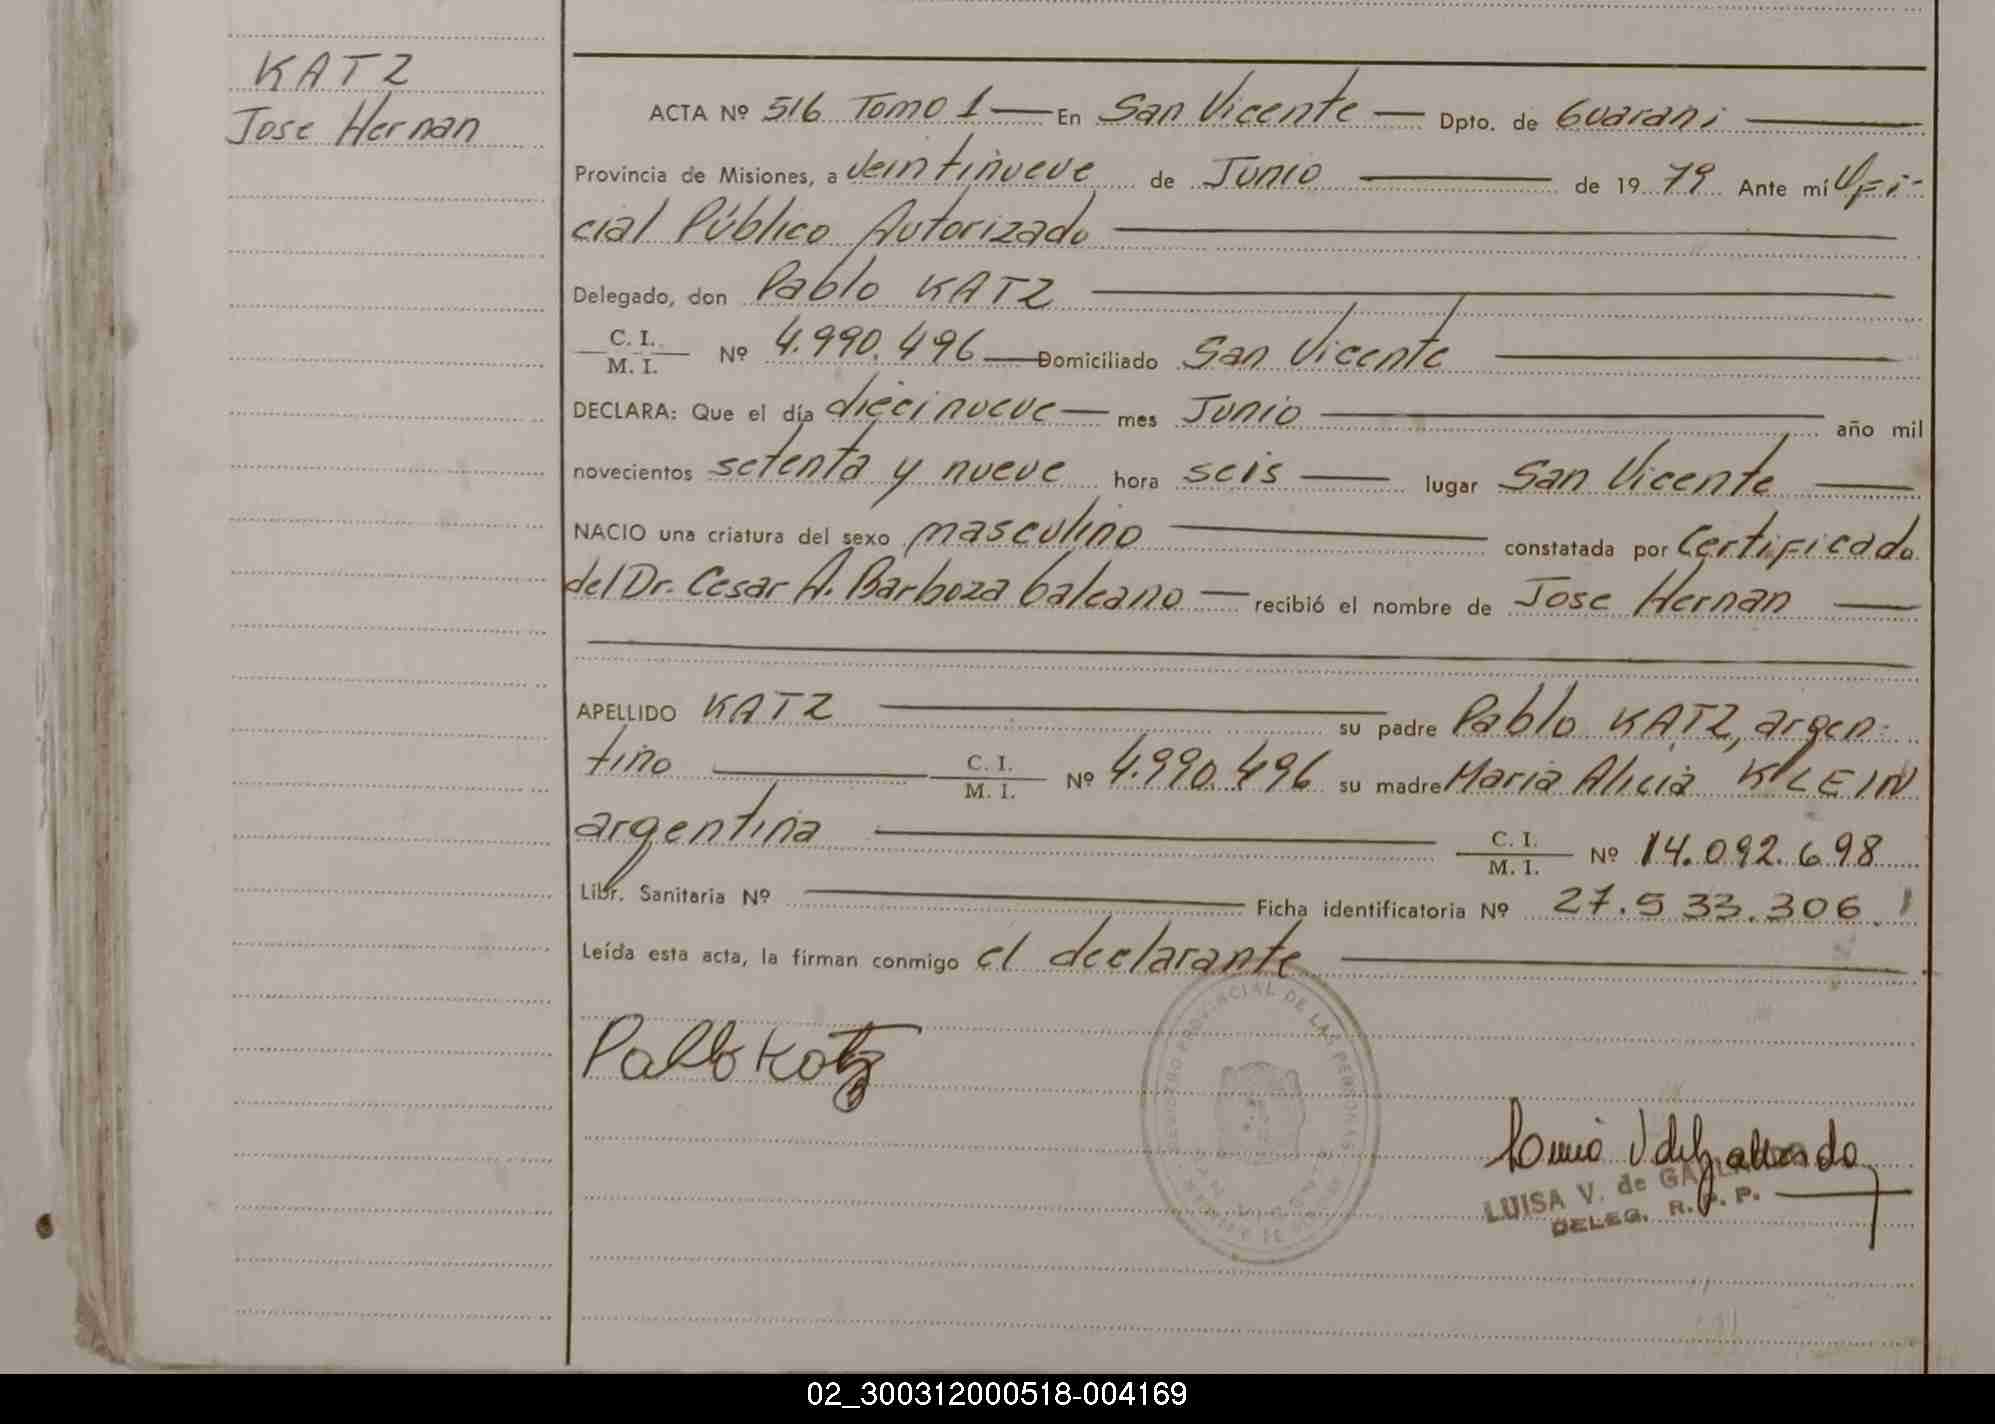 KATZ
Jose Hernan
ACTA Nº 516 Tomo 1 En San Vicente Dpto. de Guarani
Provincia de Misiones, a veintinueve de Junio de 1979 Ante mí Ofi-
cial Público Autorizado
Delegado, don Pablo KATZ
C. I.
M. I. Nº 4.990.496 Domiciliado San Vicente
DECLARA: Que el día diecinueve mes Junio año mil
novecientos setenta y nueve hora seis lugar San Vicente
NACIO una criatura del sexo masculino constatada por Certificado
del Dr. Cesar A. Barboza Galeano recibió el nombre de Jose Hernan
APELLIDO KATZ su padre Pablo KATZ, argen-
tino C. I.
M. I. Nº 4.990.496 su madre Maria Alicia KLEIN
argentina C. I.
M. I. Nº 14.092.698
Libr. Sanitaria Nº Ficha identificatoria Nº 27.533.306
Leída esta acta, la firman conmigo el declarante
REGISTRO PROVINCIAL DE LAS PERSONAS
Pablo Katz
LUISA V. de
DELEG. R. P. P.
02_300312000518-004169